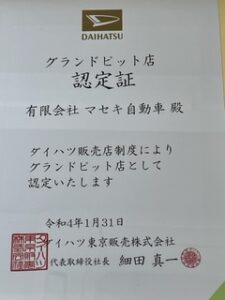 DAIHATSU
グランドピット店
認定証
有限会社 マセキ自動車 殿
ダイハツ販売店制度により
グランドピット店として
認定いたします
令和4年1月31日
ダイハツ東京販売株式会社
代表取締役社長 細田 真一